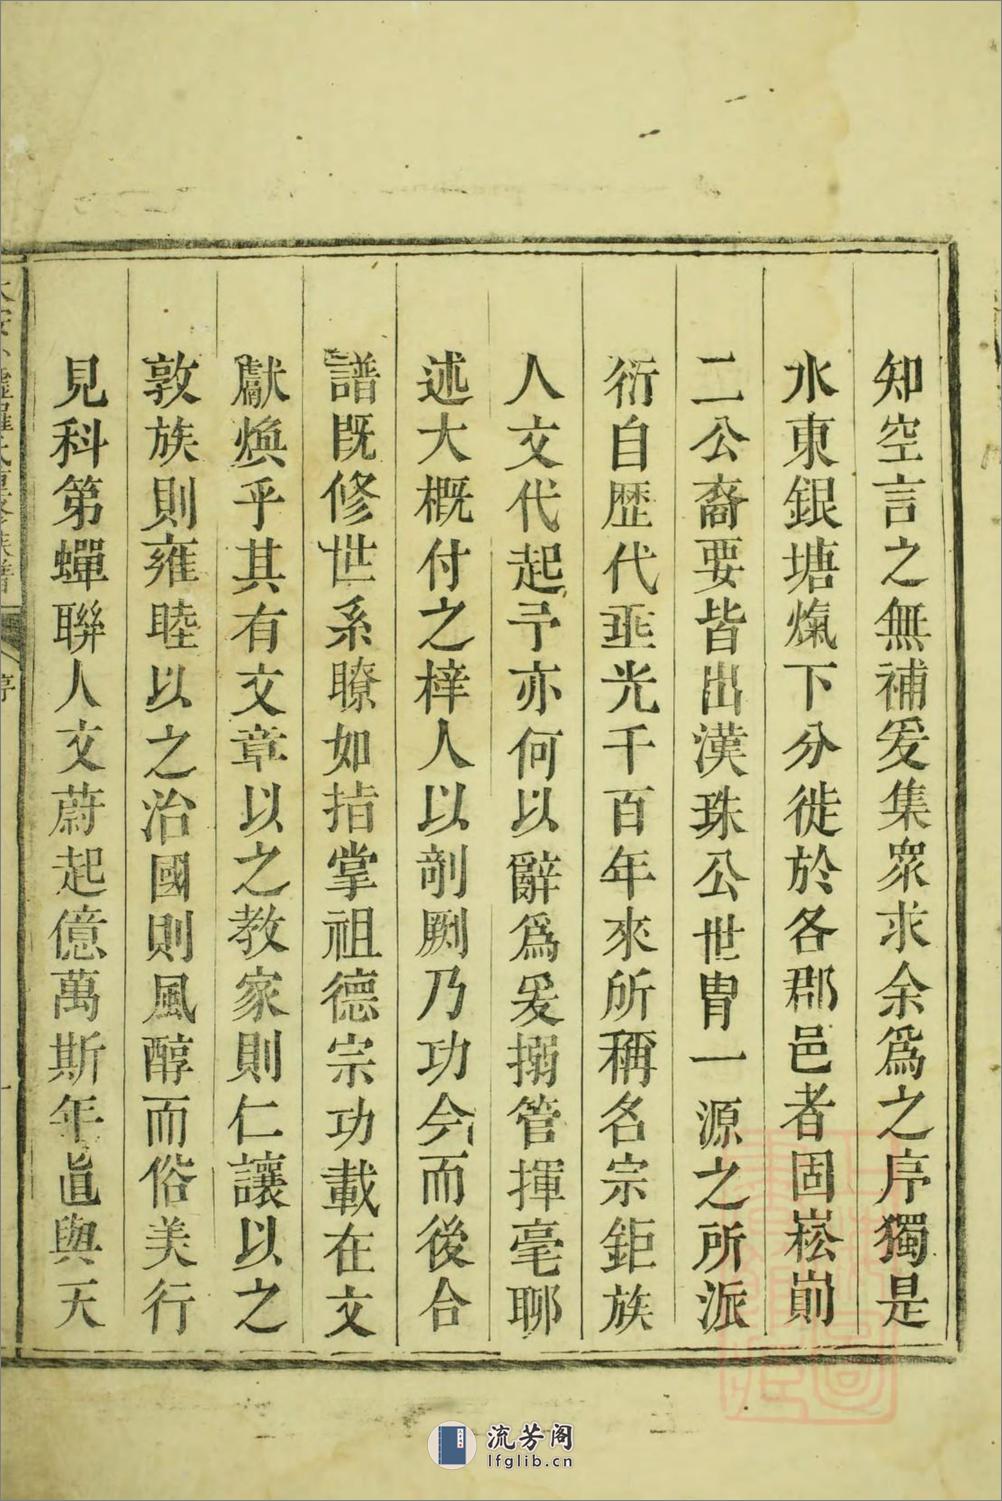 知空言之無補爰集眾求余爲之序獨是
水東銀塘㷌下分徙於各郡邑者固崧前
二公裔要皆出漢珠公世胄一源之所派
衍自歴代重光千百年來所稱名宗鉅族
人文代起予亦何以辭爲爰搦管揮毫聊
述大概付之梓人以剞劂乃功今而後合
譜既修世系瞭如掌祖德宗功載在文
獻煥乎其有文章以之教家則仁讓以之
敦族則雍睦以之治國則風醇而俗美行
見科第蟬聯人文蔚起億萬斯年直與天
流芳阁
lfglib.cn